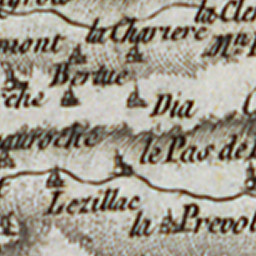 la Cler
mont la Chariere
Bertue
che
Dia
auroche
le Pas de
Lezillac
la Prevol